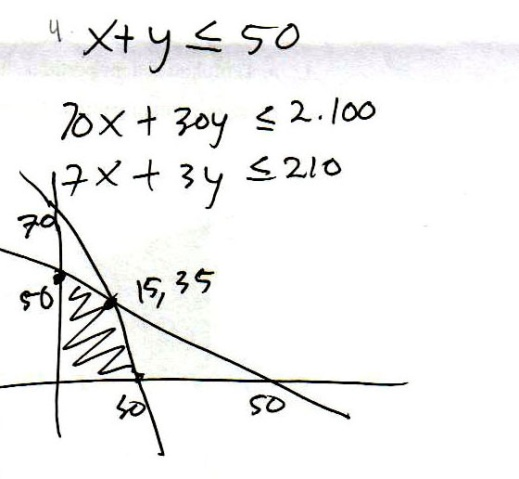 4. x + y ≤ 50
70x + 30y ≤ 2.100
7x + 3y ≤ 210
70
50
15, 35
30
50